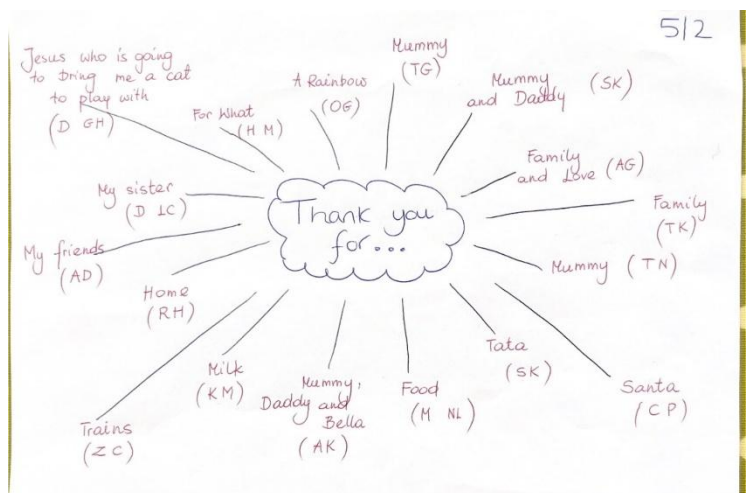 5/2
Jesus who is going
to bring me a cat
to play with
(D GH)
For What
(H M)
A Rainbow
(OG)
Mummy
(TG)
Mummy
and Daddy (SK)
Family
and Love (AG)
Family
(TK)
Mummy (TN)
Santa
(CP)
Tata
(SK)
Food
(M NL)
Mummy,
Daddy and
Bella
(AK)
Milk
(KM)
Trains
(ZC)
Home
(RH)
My friends
(AD)
My sister
(D LC)
Thank you
for...